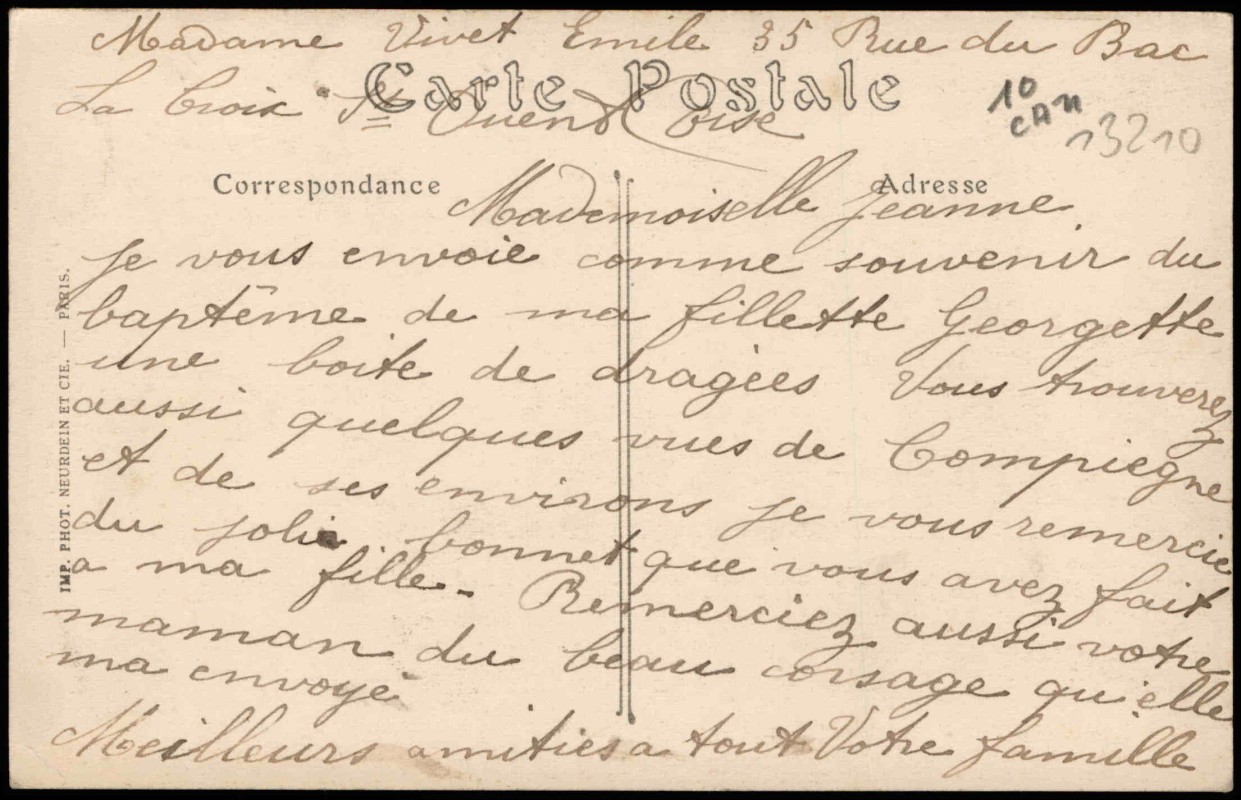 Madame Vivet Emile 35 Rue du Bac
Carte Postale
La Croix St Ouen Oise
10
CAN
13210
Correspondance
Adresse
Mademoiselle Jeanne
Je vous envoie comme souvenir du
baptême de ma fillette Georgette
une boite de dragées Vous trouverez
aussi quelques vues de Compiegne
et de ses environs je vous remercie
du joli bonnet que vous avez fait
a ma fille. Remerciez aussi votre
maman du beau corsage qu'elle
ma envoyé
Meilleurs amities a tout Votre famille
IMP. PHOT. NEURDEIN ET CIE. — PARIS.